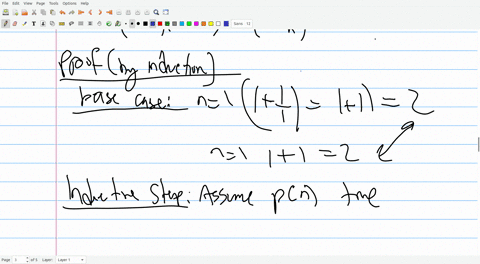 File Edit View Page Tools Options Help
Proof (by induction)
base case: n=1 (1+1/1) = (1+1) = 2
n=1 1+1 = 2
Inductive Step: Assume p(n) true
Page 3 of 5 Layer Layer 1